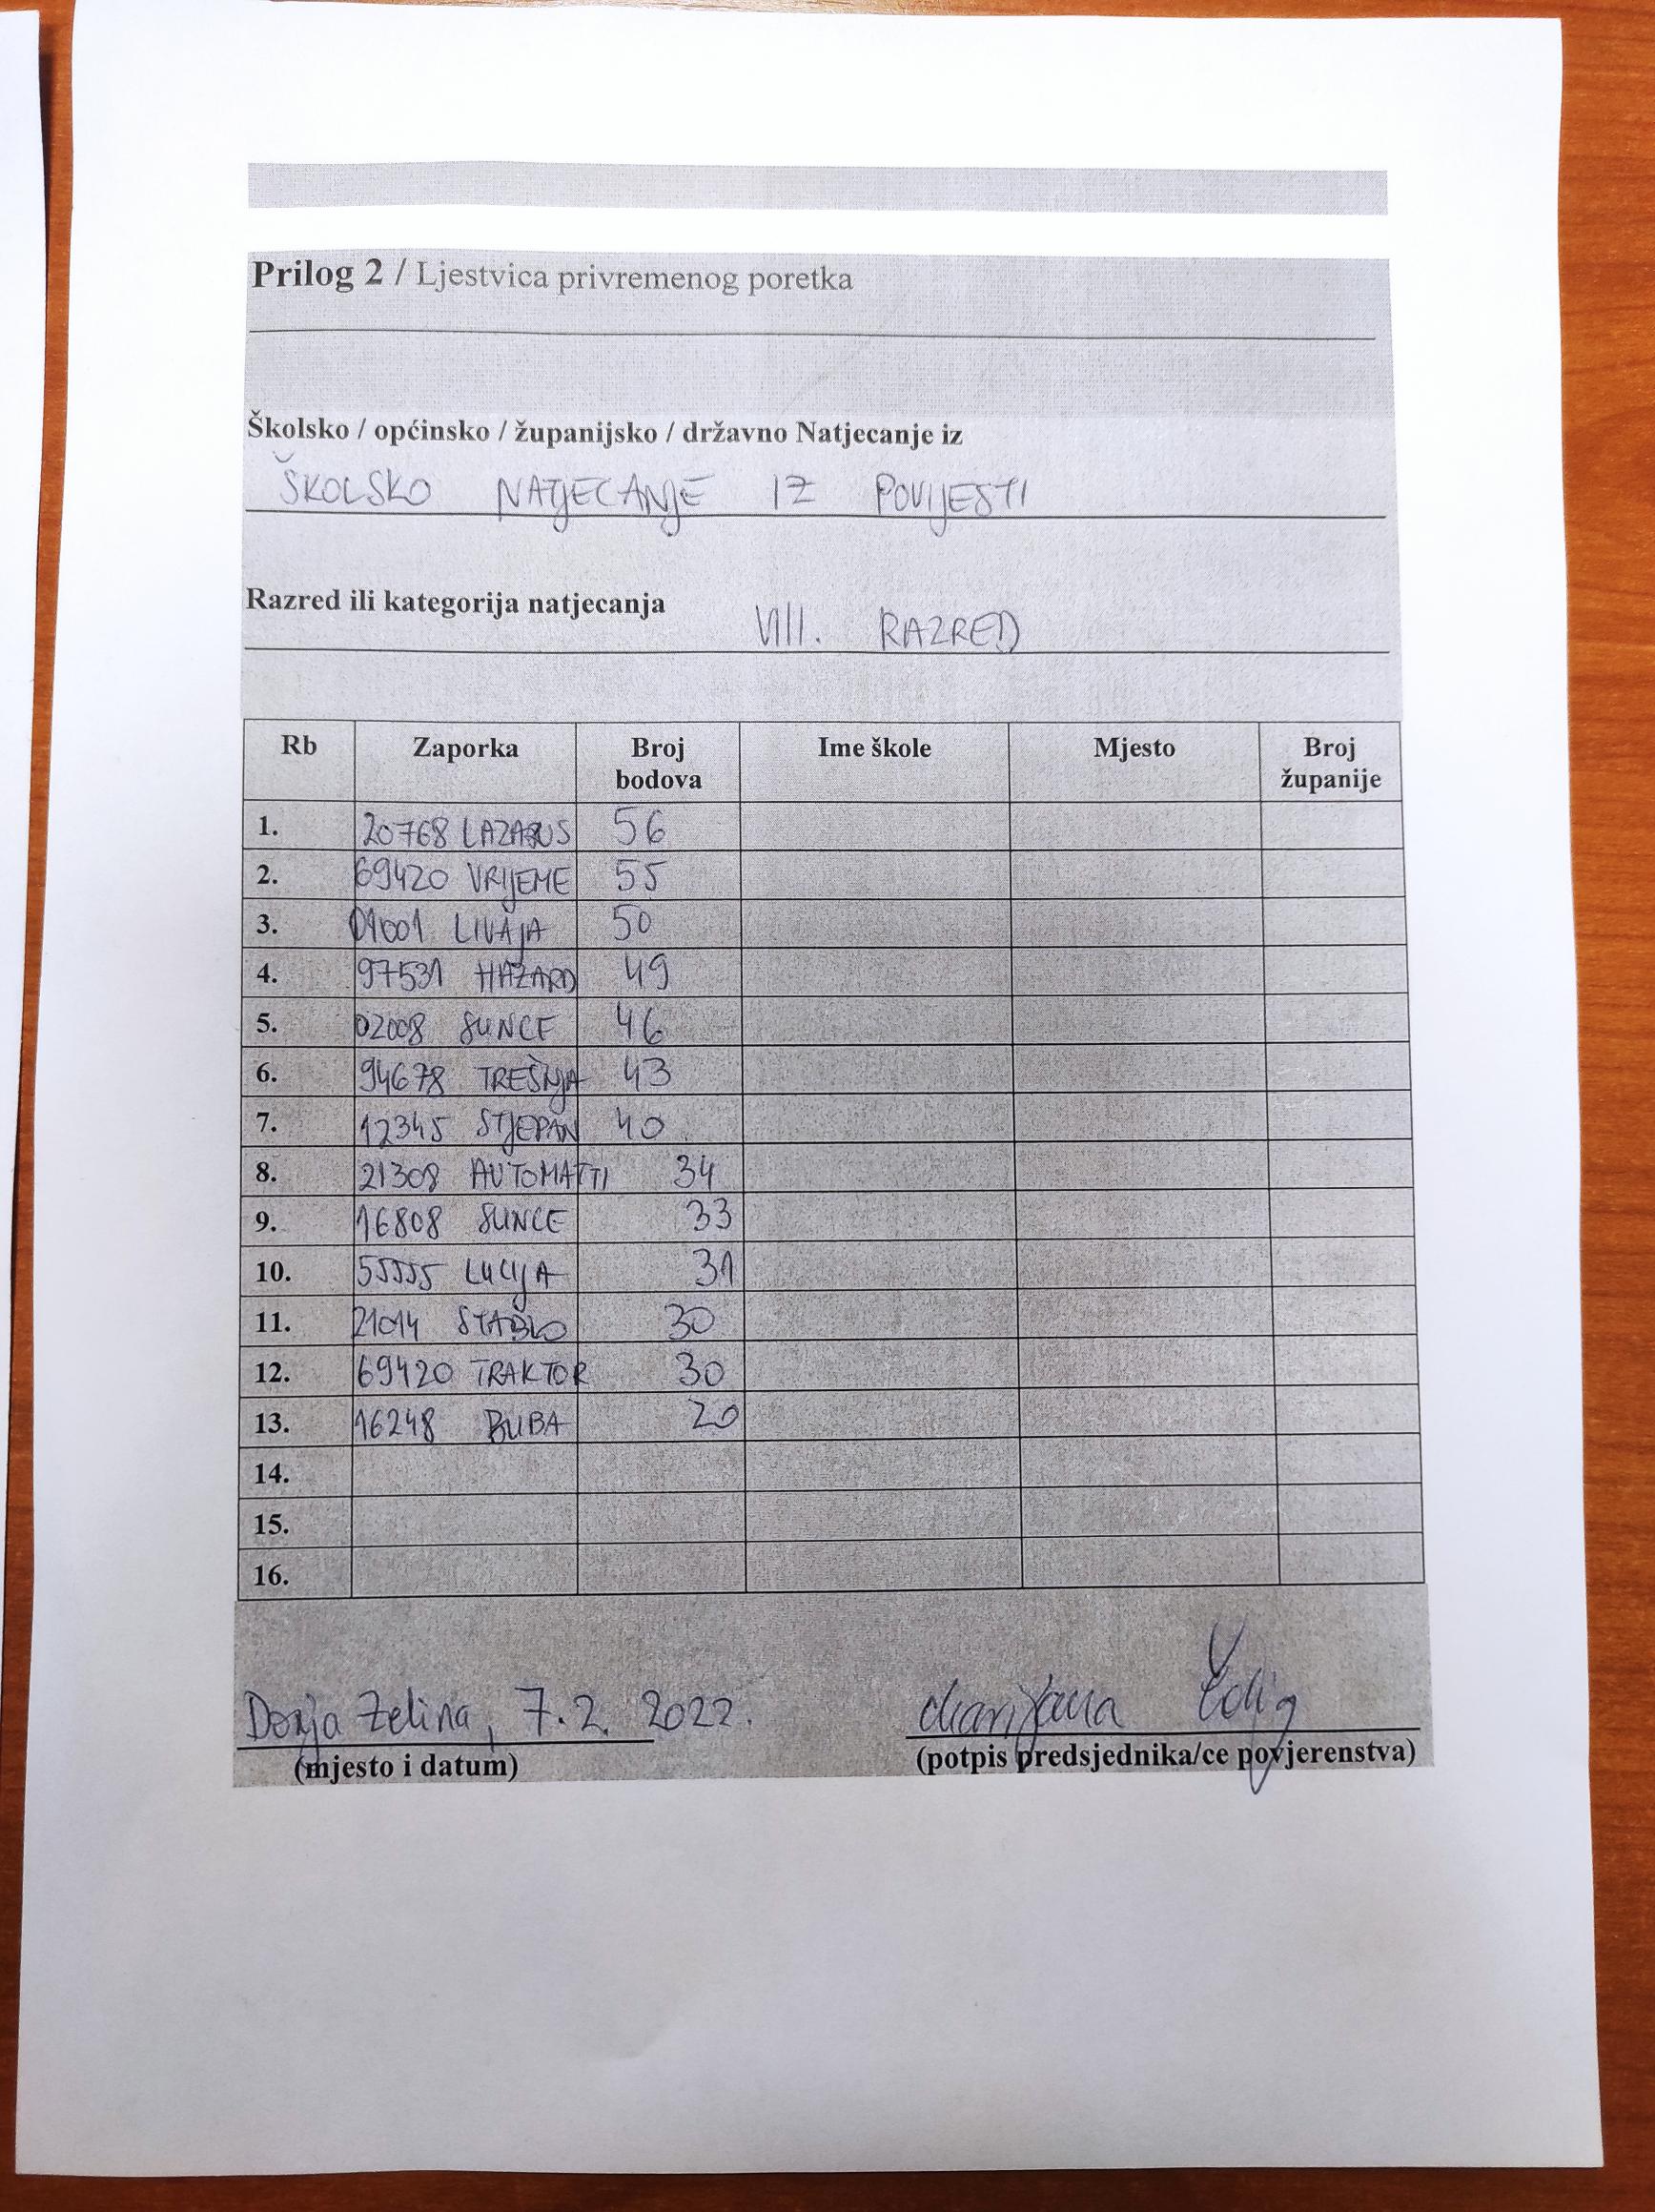 Prilog 2 / Ljestvica privremenog poretka
Školsko / općinsko / županijsko / državno Natjecanje iz
ŠKOLSKO NATJECANJE IZ POVIJESTI
Razred ili kategorija natjecanja
VIII. RAZRED
Rb Zaporka Broj bodova Ime škole Mjesto Broj županije
1. 20768 LAZARUS 56
2. 69420 VRIJEME 55
3. 01001 LIVAJA 50
4. 97531 HAZARD 49
5. 02008 SUNCE 46
6. 94678 TREŠNJA 43
7. 12345 STJEPAN 40
8. 21308 AUTOMATTI 34
9. 16808 SUNCE 33
10. 55555 LUCIJA 31
11. 21014 STABLO 30
12. 69420 TRAKTOR 30
13. 16248 BUBA 20
14.
15.
16.
Donja Zelina, 7.2. 2022.
Marijana
(mjesto i datum)
(potpis predsjednika/ce povjerenstva)